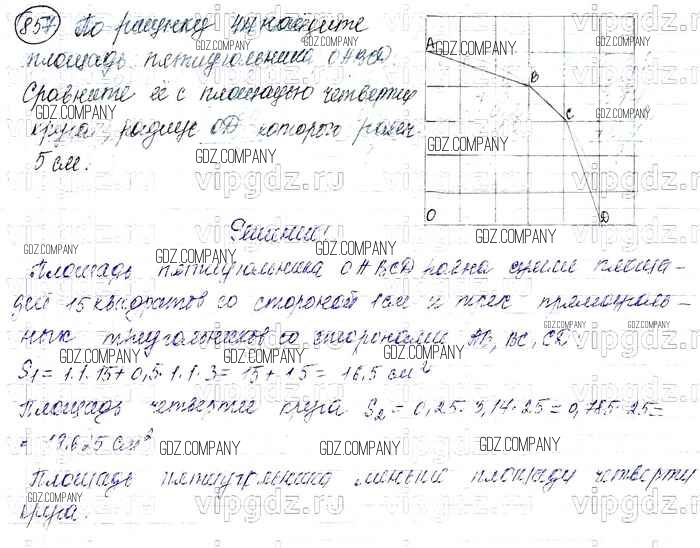 857. По рисунку 44 найдите
площадь пятиугольника OABCD.
Сравните её с площадью четверти
круга, радиус OD которого равен
5 см.
A
B
C
O
D
Решение:
Площадь пятиугольника OABCD равна сумме площа-
дей 15 квадратов со стороной 1 см и трех прямоуголь-
ных треугольников со сторонами AB, BC, CD.
S1 = 1·1·15 + 0,5·1·1·3 = 15 + 1,5 = 16,5 см²
Площадь четверти круга S2 = 0,25·3,14·25 = 0,785·25 =
= 19,625 см²
Площадь пятиугольника меньше площади четверти
круга.
GDZ.COMPANY
vipgdz.ru